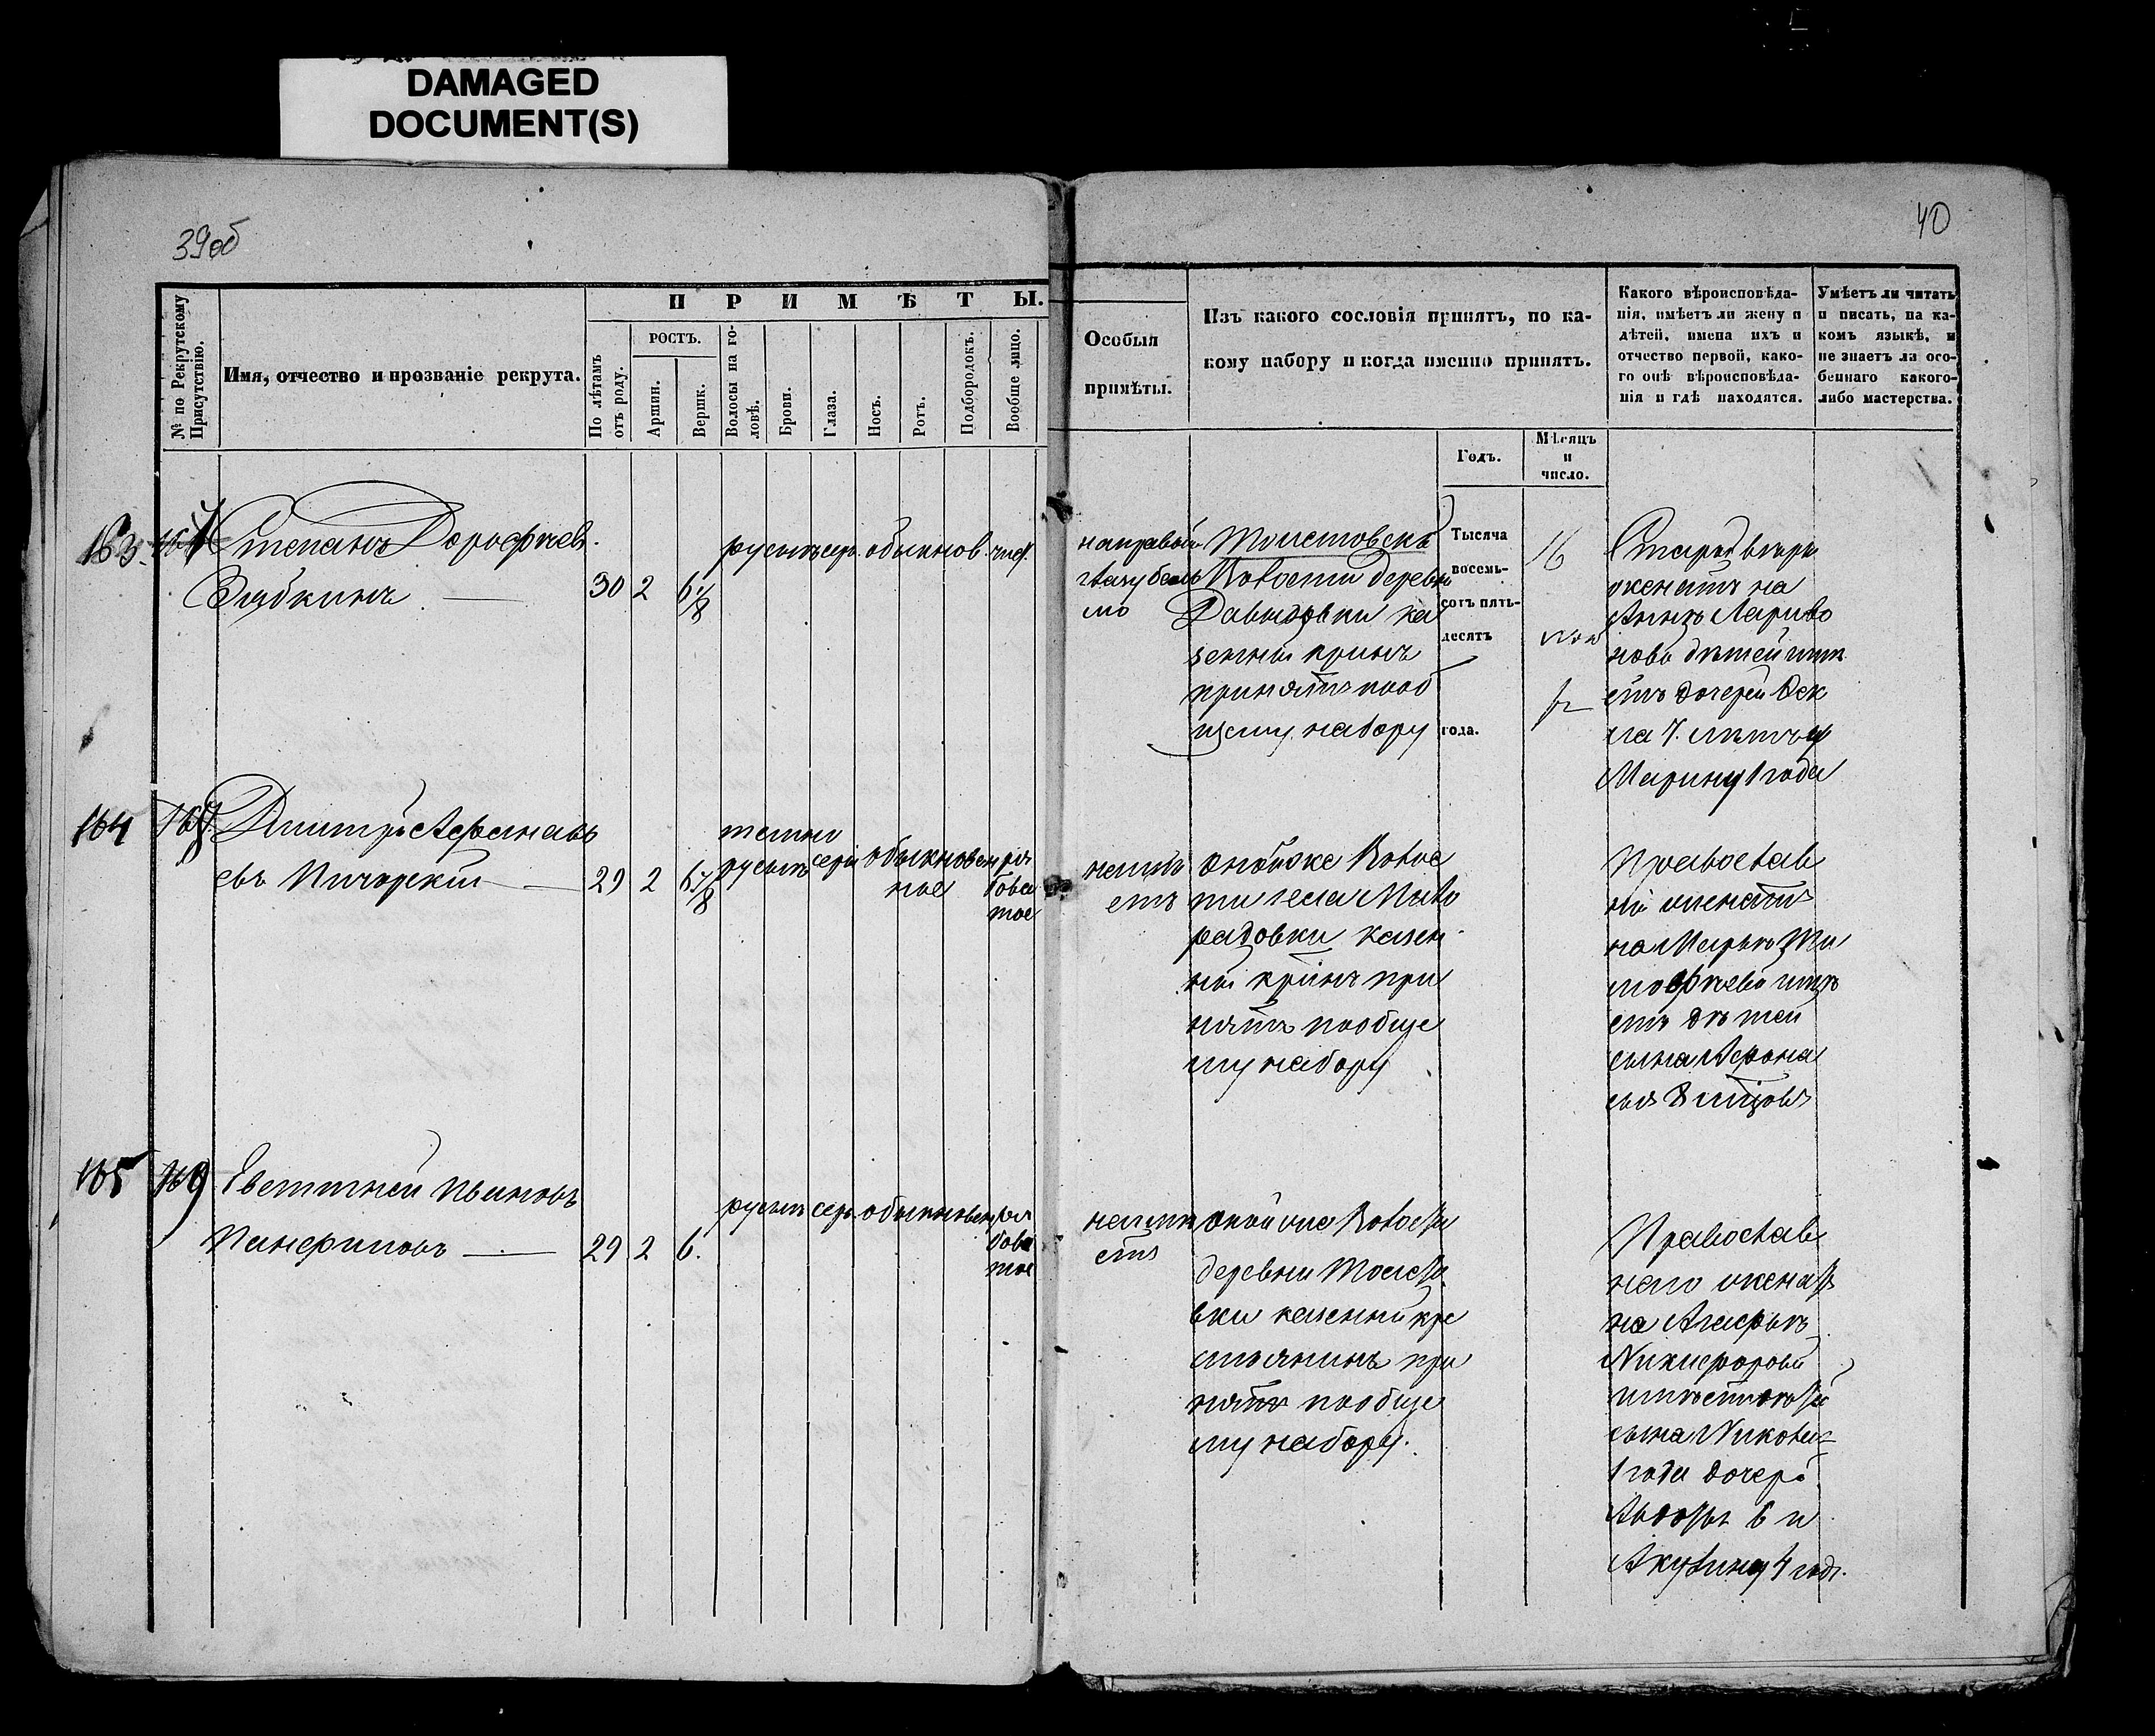 DAMAGED
DOCUMENT(S)
39об
40
ПРИМѢТЫ.
№ по Рекрутскому
Присутствію.
Имя, отчество и прозваніе рекрута.
По лѣтамъ
отъ роду.
РОСТЪ.
Аршин.
Вершк.
Волосы на го-
ловѣ.
Брови.
Глаза.
Носъ.
Ротъ.
Подбородокъ.
Вообще лицо.
Особыя
примѣты.
Изъ какого сословія принятъ, по ка-
кому набору и когда именно принятъ.
Годъ.
Мѣсяцъ
и
число.
Какого вѣроисповѣда-
нія, имѣетъ ли жену и
дѣтей, имена ихъ и
отчество первой, како-
го онѣ вѣроисповѣда-
нія и гдѣ находятся.
Умѣетъ ли читать
и писать, на ка-
комъ языкѣ, и
не знаетъ ли осо-
беннаго какого-
либо мастерства.
163.
Степанъ Дорофѣевъ
Зябкинъ
30 2 6 1/8
русыя сер. обыкнов. чист.
на правой
глазу бель
мо
Толстовской
Волости деревни
Давыдовки ка
зенный крин
принятъ по об
щему набору
Тысяча
восемь-
сотъ пять-
десятъ
года.
16
Старовѣръ
женатъ на
Аннѣ Ларіоно
новой дѣтей имѣ
етъ дочерей Фек
ла 7. лѣтъ и
Марину 1 года
164
Дмитрій Афанась
евъ Пичорскій
29 2 6
темно
русыя серы обыкновен
ное
ря
бова
тое
неимѣ
етъ
оной же Волос
ти села Мило
радовки казен
ный крин при
нятъ по обще
му набору
Православ
ный женатъ
на Марьѣ Ти
мофѣевой имѣ
етъ дѣтей
сына Афона
сія 8 мѣсяцовъ
165 169
Евстигней Ивановъ
Панфиловъ
29 2 6.
русыя серы обыкновен ря
бова
тое
неимѣ
етъ
оной же Волости
деревни Толсто
вки казенный кре
стьянинъ при
нятъ по обще
му набору.
Православ
наго женатъ
на Агафьѣ
Никифоровой
имѣетъ дѣтей
сына Никола
1 года дочерей
Авдотья 6 и
Акулину 4 год.